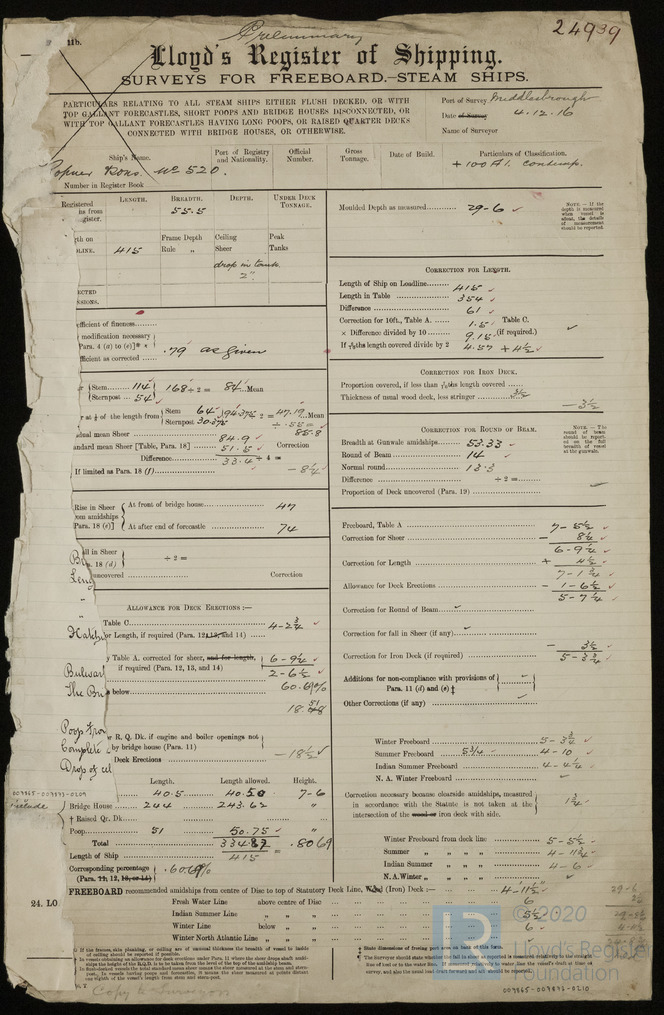 Preliminary
24939
11b.
Lloyd's Register of Shipping.
SURVEYS FOR FREEBOARD.—STEAM SHIPS.
PARTICULARS RELATING TO ALL STEAM SHIPS EITHER FLUSH DECKED, OR WITH
TOP GALLANT FORECASTLES, SHORT POOPS AND BRIDGE HOUSES DISCONNECTED, OR
WITH TOP GALLANT FORECASTLES HAVING LONG POOPS, OR RAISED QUARTER DECKS
CONNECTED WITH BRIDGE HOUSES, OR OTHERWISE.
Port of Survey Middlesbrough
Date of Survey 4.12.16
Name of Surveyor
Ship's Name.
Port of Registry and Nationality.
Official Number.
Gross Tonnage.
Date of Build.
Particulars of Classification.
Ropner Sons. No 520.
+100A1. contemp.
Number in Register Book
Registered
ns from
gister.
LENGTH. BREADTH. DEPTH. UNDER DECK TONNAGE.
55.5
gth on
DLINE. 415
Frame Depth Ceiling Peak
Rule „ Sheer Tanks
drop in tank
2"
ECTED
NSIONS.
Moulded Depth as measured 29-6
NOTE.—If the depth is measured when vessel is afloat, the details of measurement should be reported.
efficient of fineness
modification necessary
Para. 4 (a) to (e)]*
efficient as corrected
.79 as given
Stem 114
Sternpost 54
168 ÷ 2 = 84 Mean
r at ⅛ of the length from
Stem 64
Sternpost 30.375
94.375 ÷ 2 = 47.19 Mean
÷ .55 =
85.8
dual mean Sheer 84.9
andard mean Sheer [Table, Para. 18] 51.5 Correction
Difference 33.4 ÷ 4 =
If limited as Para. 18 (f) – 8¼
Rise in Sheer
om amidships
Para. 18 (e)]
At front of bridge house 47
At after end of forecastle 74
all in Sheer
a. 18 (d)
÷ 2 =
uncovered Correction
ALLOWANCE FOR DECK ERECTIONS :—
Table C. 4-2¾
or Length, if required (Para. 12, 13, and 14)
y Table A. corrected for sheer, and for length,
if required (Para. 12, 13, and 14)
6-9¼
2-6½
below 60.69%
18.51
or R. Q. Dk. if engine and boiler openings not
by bridge house (Para. 11)
Deck Erections – 18½
Length. Length allowed. Height.
40.5 40.50 7-6
Bridge House 244 243.62 „
† Raised Qr. Dk.
Poop 51 50.75 „
Total 334.87 = .8069
Length of Ship 415
Corresponding percentage
(Para. 11, 12, 13, or 14)
.60.69%
CORRECTION FOR LENGTH.
Length of Ship on Loadline 415
Length in Table 354
Difference 61
Correction for 10ft., Table A. 1.5 Table C.
× Difference divided by 10 9.15 (if required.)
If 6/10ths length covered divide by 2 4.57 + 4½
CORRECTION FOR IRON DECK.
Proportion covered, if less than 7/10ths length covered
Thickness of usual wood deck, less stringer 3½
– 3½
CORRECTION FOR ROUND OF BEAM.
NOTE.—The round of beam should be reported on the full breadth of vessel at the gunwale.
Breadth at Gunwale amidships 53.33
Round of Beam 14
Normal round 13.3
Difference ÷ 2 =
Proportion of Deck uncovered (Para. 19)
Freeboard, Table A 7-5½
Correction for Sheer – 8¼
6-9¼
Correction for Length + 4½
7-1¾
Allowance for Deck Erections – 1-6½
5-7¼
Correction for Round of Beam
Correction for fall in Sheer (if any)
Correction for Iron Deck (if required) – 3½
5-3¾
Additions for non-compliance with provisions of
Para. 11 (d) and (e) ‡
Other Corrections (if any)
Winter Freeboard 5-3¾
Summer Freeboard 5¾ 4-10
Indian Summer Freeboard 4-4¼
N. A. Winter Freeboard
Correction necessary because clearside amidships, measured
in accordance with the Statute is not taken at the
intersection of the wood or iron deck with side.
1¾
Winter Freeboard from deck line 5-5½
Summer „ „ „ „ 4-11¾
Indian Summer „ „ „ „ 4-6
N. A. Winter „ „ „ „
Hatchw
Bulwar
The Br
Poop fron
Complete
Drop of cel
009865-009893-0209
24. LO
FREEBOARD recommended amidships from centre of Disc to top of Statutory Deck Line, Wood (Iron) Deck :— 4-11½
Fresh Water Line above centre of Disc 6
Indian Summer Line „ 5½
Winter Line below „ 6
Winter North Atlantic Line „
29-6
©2020
Lloyd's Register
Foundation
009865-009893-0210